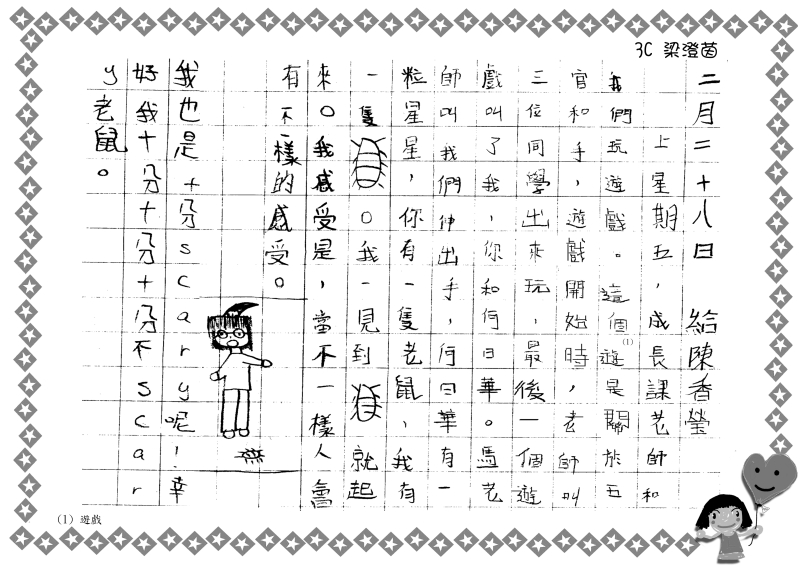 3C 梁澄茵
二月二十八日 給陳香瑩
上星期五，成長課老師和
我們玩遊戲。這個遊(1)是關於五
官和手，遊戲開始時，老師叫
三位同學出來玩，最後一個遊
戲叫了我，你和何日華。馬老
師叫我們伸出手，何日華有一
粒星星，你有一隻老鼠，我有
一隻。我一見到就起
來。我感受是，當不一樣人會
有不一樣的感受。
我也是十分scary呢！幸
好我十分十分十分不scar
y老鼠。
(1) 遊戲